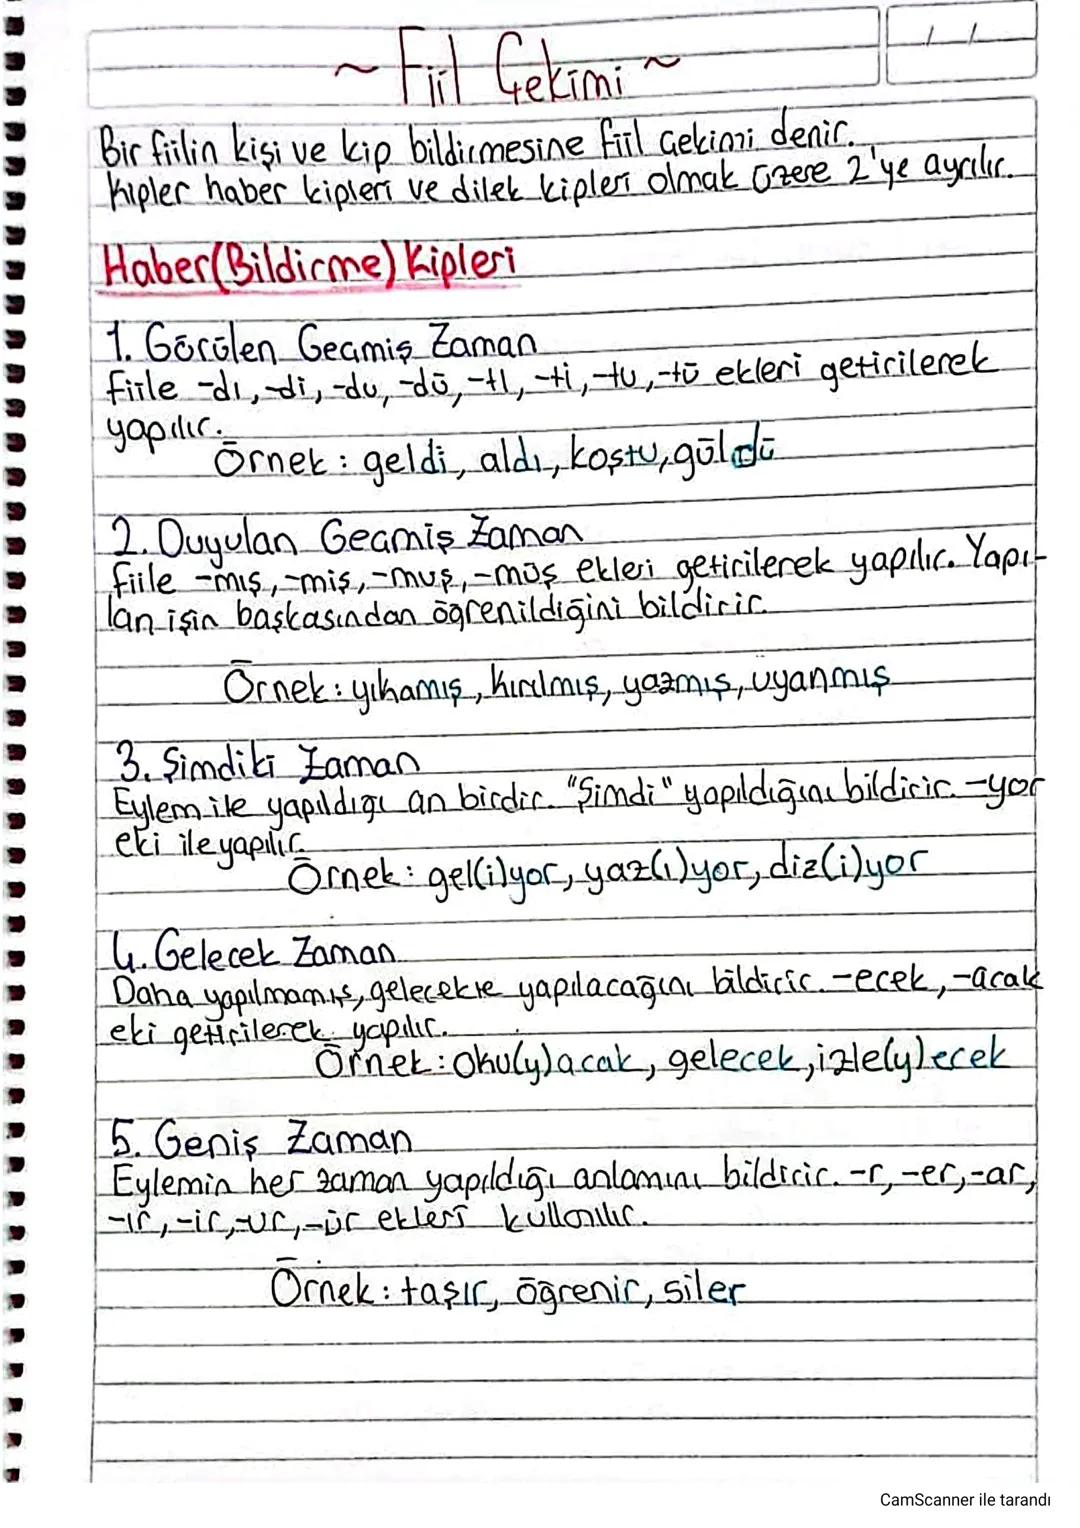 ~ Fiil Çekimi ~
Bir fiilin kişi ve kip bildirmesine fiil çekimi denir.
Kipler haber kipleri ve dilek kipleri olmak üzere 2'ye ayrılır.
Haber(Bildirme) Kipleri
1. Görülen Geçmiş Zaman
Fiile -dı, -di, -du, -dü, -tı, -ti, -tu, -tü ekleri getirilerek
yapılır.
Örnek : geldi, aldı, koştu, güldü
2. Duyulan Geçmiş Zaman
fiile -mış, -miş, -muş, -müş ekleri getirilerek yapılır. Yapı-
lan işin başkasından öğrenildiğini bildirir.
Örnek : yıkamış, kırılmış, yazmış, uyanmış
3. Şimdiki Zaman
Eylem ile yapıldığı an birdir. "Şimdi" yapıldığını bildirir. -yor
eki ile yapılır.
Örnek : gel(i)yor, yaz(ı)yor, diz(i)yor
4. Gelecek Zaman
Daha yapılmamış, gelecekte yapılacağını bildirir. -ecek, -acak
eki getirilerek yapılır.
Örnek : Oku(y)acak, gelecek, izle(y)ecek
5. Geniş Zaman
Eylemin her zaman yapıldığı anlamını bildirir. -r, -er, -ar,
-ır, -ir, -ur, -ür ekleri kullanılır.
Örnek : taşır, öğrenir, siler
CamScanner ile tarandı